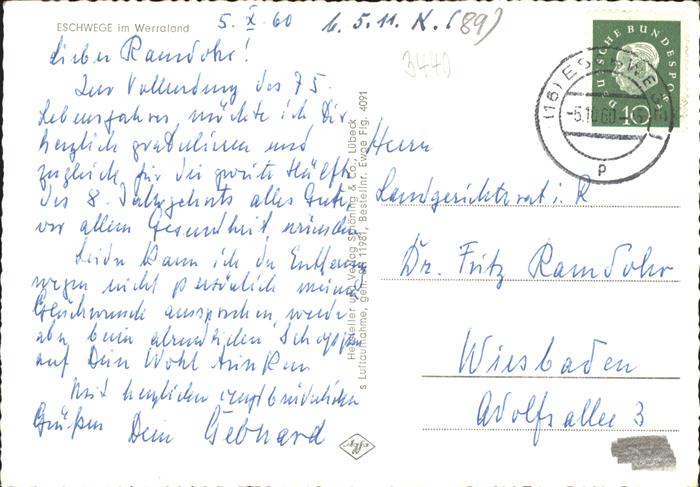 ESCHWEGE im Werraland
5. X. 60
b. 5.11. K. (89)
3440
Lieber Ramdohr!
Zur Vollendung des 75.
Lebensjahres möchte ich Dir
herzlich gratulieren und
zugleich für die zweite Hälfte
des 8. Jahrzehnts alles Gute,
vor allem Gesundheit wünschen.
Leider kann ich der Entfernung
wegen nicht persönlich meine
Glückwünsche aussprechen, werde
aber beim abendlichen Schoppen
auf Dein Wohl trinken
Mit herzlichen
Grüßen Dein Gebhard
Hersteller und Verlag Schöning & Co., Lübeck
s Luftaufnahme, geh. 11981, Bestellnr. Ewge Flg. 4091
DEUTSCHE BUNDESPOST
10
(16) ESCHWEGE
-5.10.60
p
Herrn
Landgerichtsrat i. R
Dr. Fritz Ramdohr
Wiesbaden
Adolfsallee 3